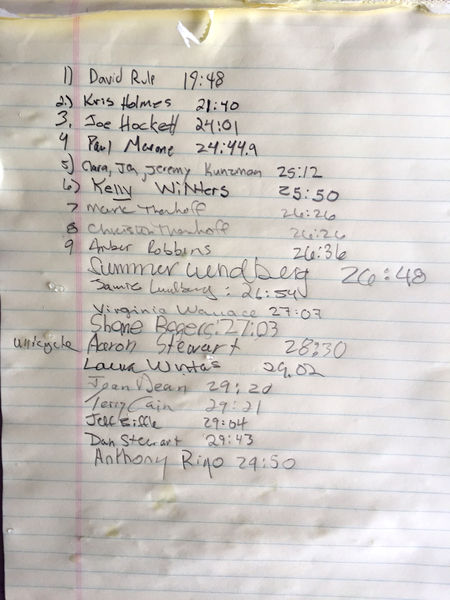 1) David Rule 19:48
2.) Kris Holmes 21:40
3. Joe Hockett 24:01
4 Paul Marone 24:44.9
5) Clara, Jen, Jeremy Kunzman 25:12
6.) Kelly Winters 25:50
7 Mark Thenhoff 26:26
8 Christian Thenhoff 26:26
9 Amber Robbins 26:36
Summer Lundberg 26:48
Jamie Lundberg: 26:54
Virginia Wallace 27:07
Shane Bogers: 27:03
unicycle Aaron Stewart 28:30
Laura 29.02
Jean Dean 29:20
Terry Cain 29:21
Jeff 29:04
Dan Stewart 29:43
Anthony Rigo 29:50